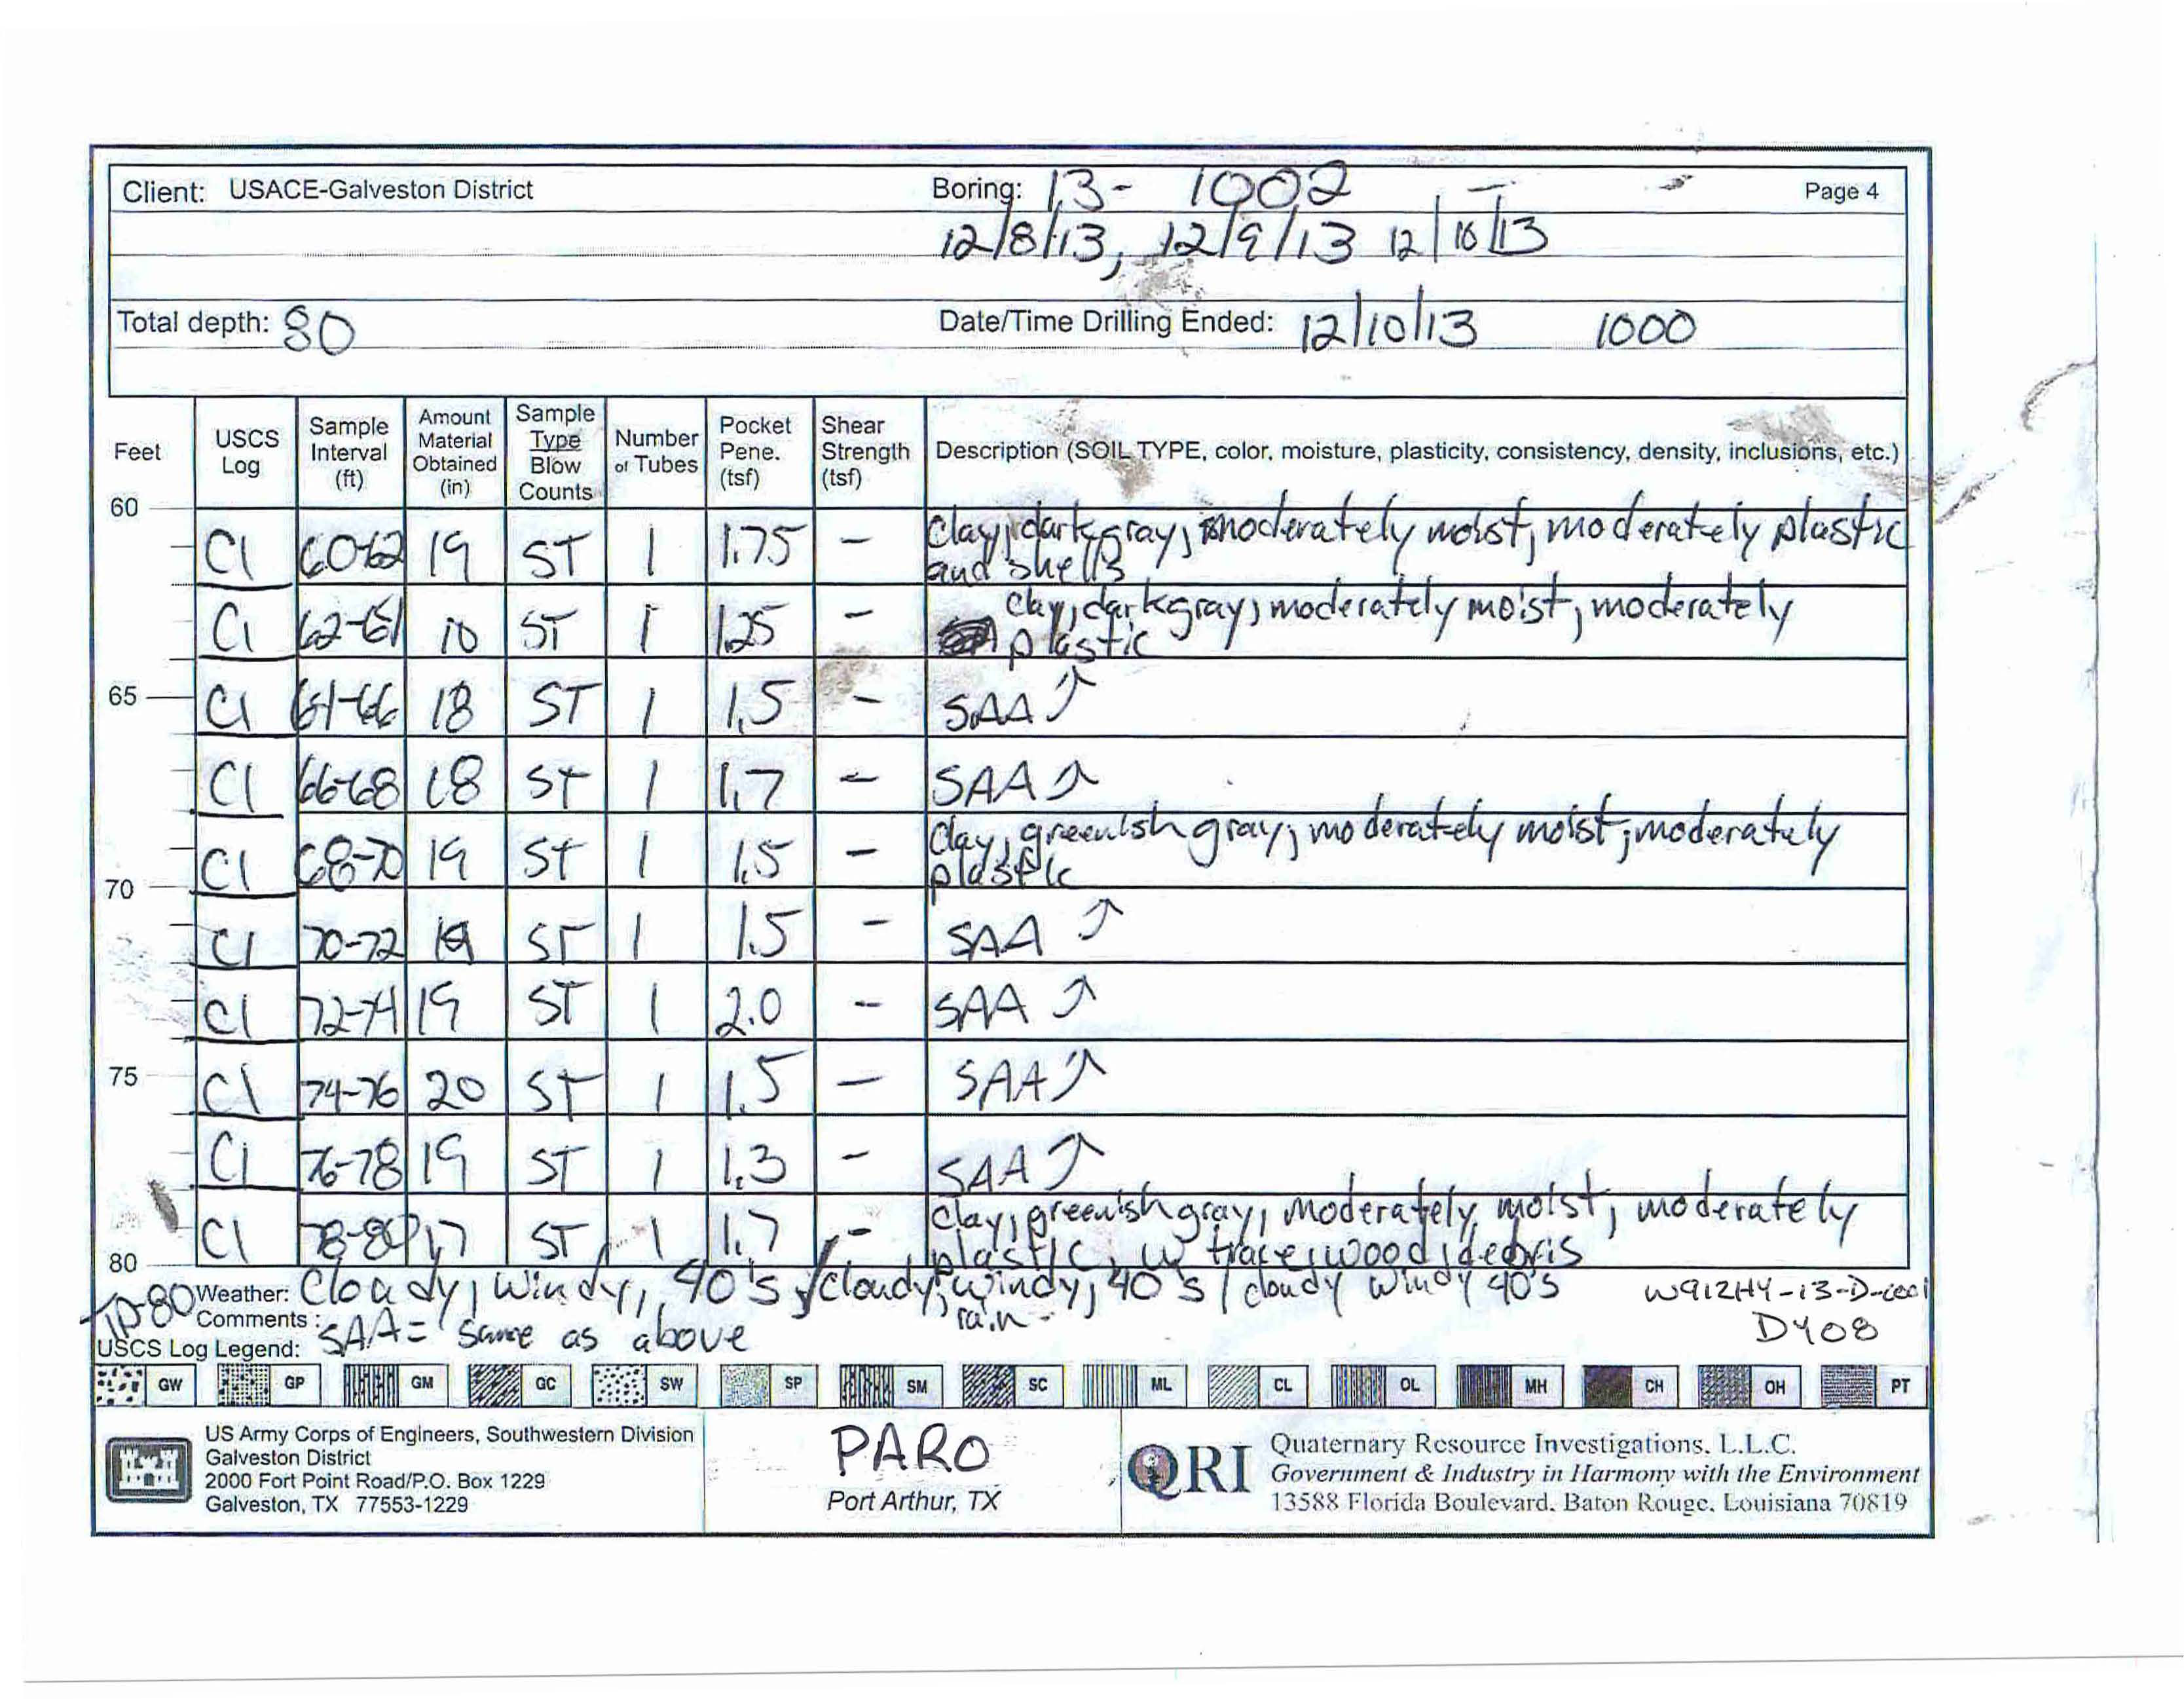 Client: USACE-Galveston District Boring: 13- 1002 Page 4
12/8/13, 12/9/13 12/10/13
Total depth: 80 Date/Time Drilling Ended: 12/10/13 1000
Feet USCS Log Sample Interval (ft) Amount Material Obtained (in) Sample Type Blow Counts Number of Tubes Pocket Pene. (tsf) Shear Strength (tsf) Description (SOIL TYPE, color, moisture, plasticity, consistency, density, inclusions, etc.)
60
Cl 60-62 19 ST 1 1.75 - Clay, dark gray, moderately moist, moderately plastic
and shells
Cl 62-64 10 ST 1 1.25 - clay, dark gray, moderately moist, moderately
plastic
65 Cl 64-66 18 ST 1 1.5 - SAA ↑
Cl 66-68 18 ST 1 1.7 - SAA ↑
Cl 68-70 19 ST 1 1.5 - Clay, greenish gray, moderately moist, moderately
plastic
70
Cl 70-72 ST 1 1.5 - SAA ↑
Cl 72-74 19 ST 1 2.0 - SAA ↑
75 Cl 74-76 20 ST 1 1.5 - SAA ↑
Cl 76-78 19 ST 1 1.3 - SAA ↑
Cl 78-80 17 ST 1 1.7 - Clay, greenish gray, moderately moist, moderately
plastic, w/ trace wood debris
80
TD-80 Weather: Cloudy, windy, 40's / cloudy, windy, 40's / cloudy windy 40's W912HY-13-D-
rain
Comments: SAA= same as above DY08
USCS Log Legend:
GW GP GM GC SW SP SM SC ML CL OL MH CH OH PT
US Army Corps of Engineers, Southwestern Division
Galveston District
2000 Fort Point Road/P.O. Box 1229
Galveston, TX 77553-1229
PARO
Port Arthur, TX
QRI
Quaternary Resource Investigations, L.L.C.
Government & Industry in Harmony with the Environment
13588 Florida Boulevard, Baton Rouge, Louisiana 70819